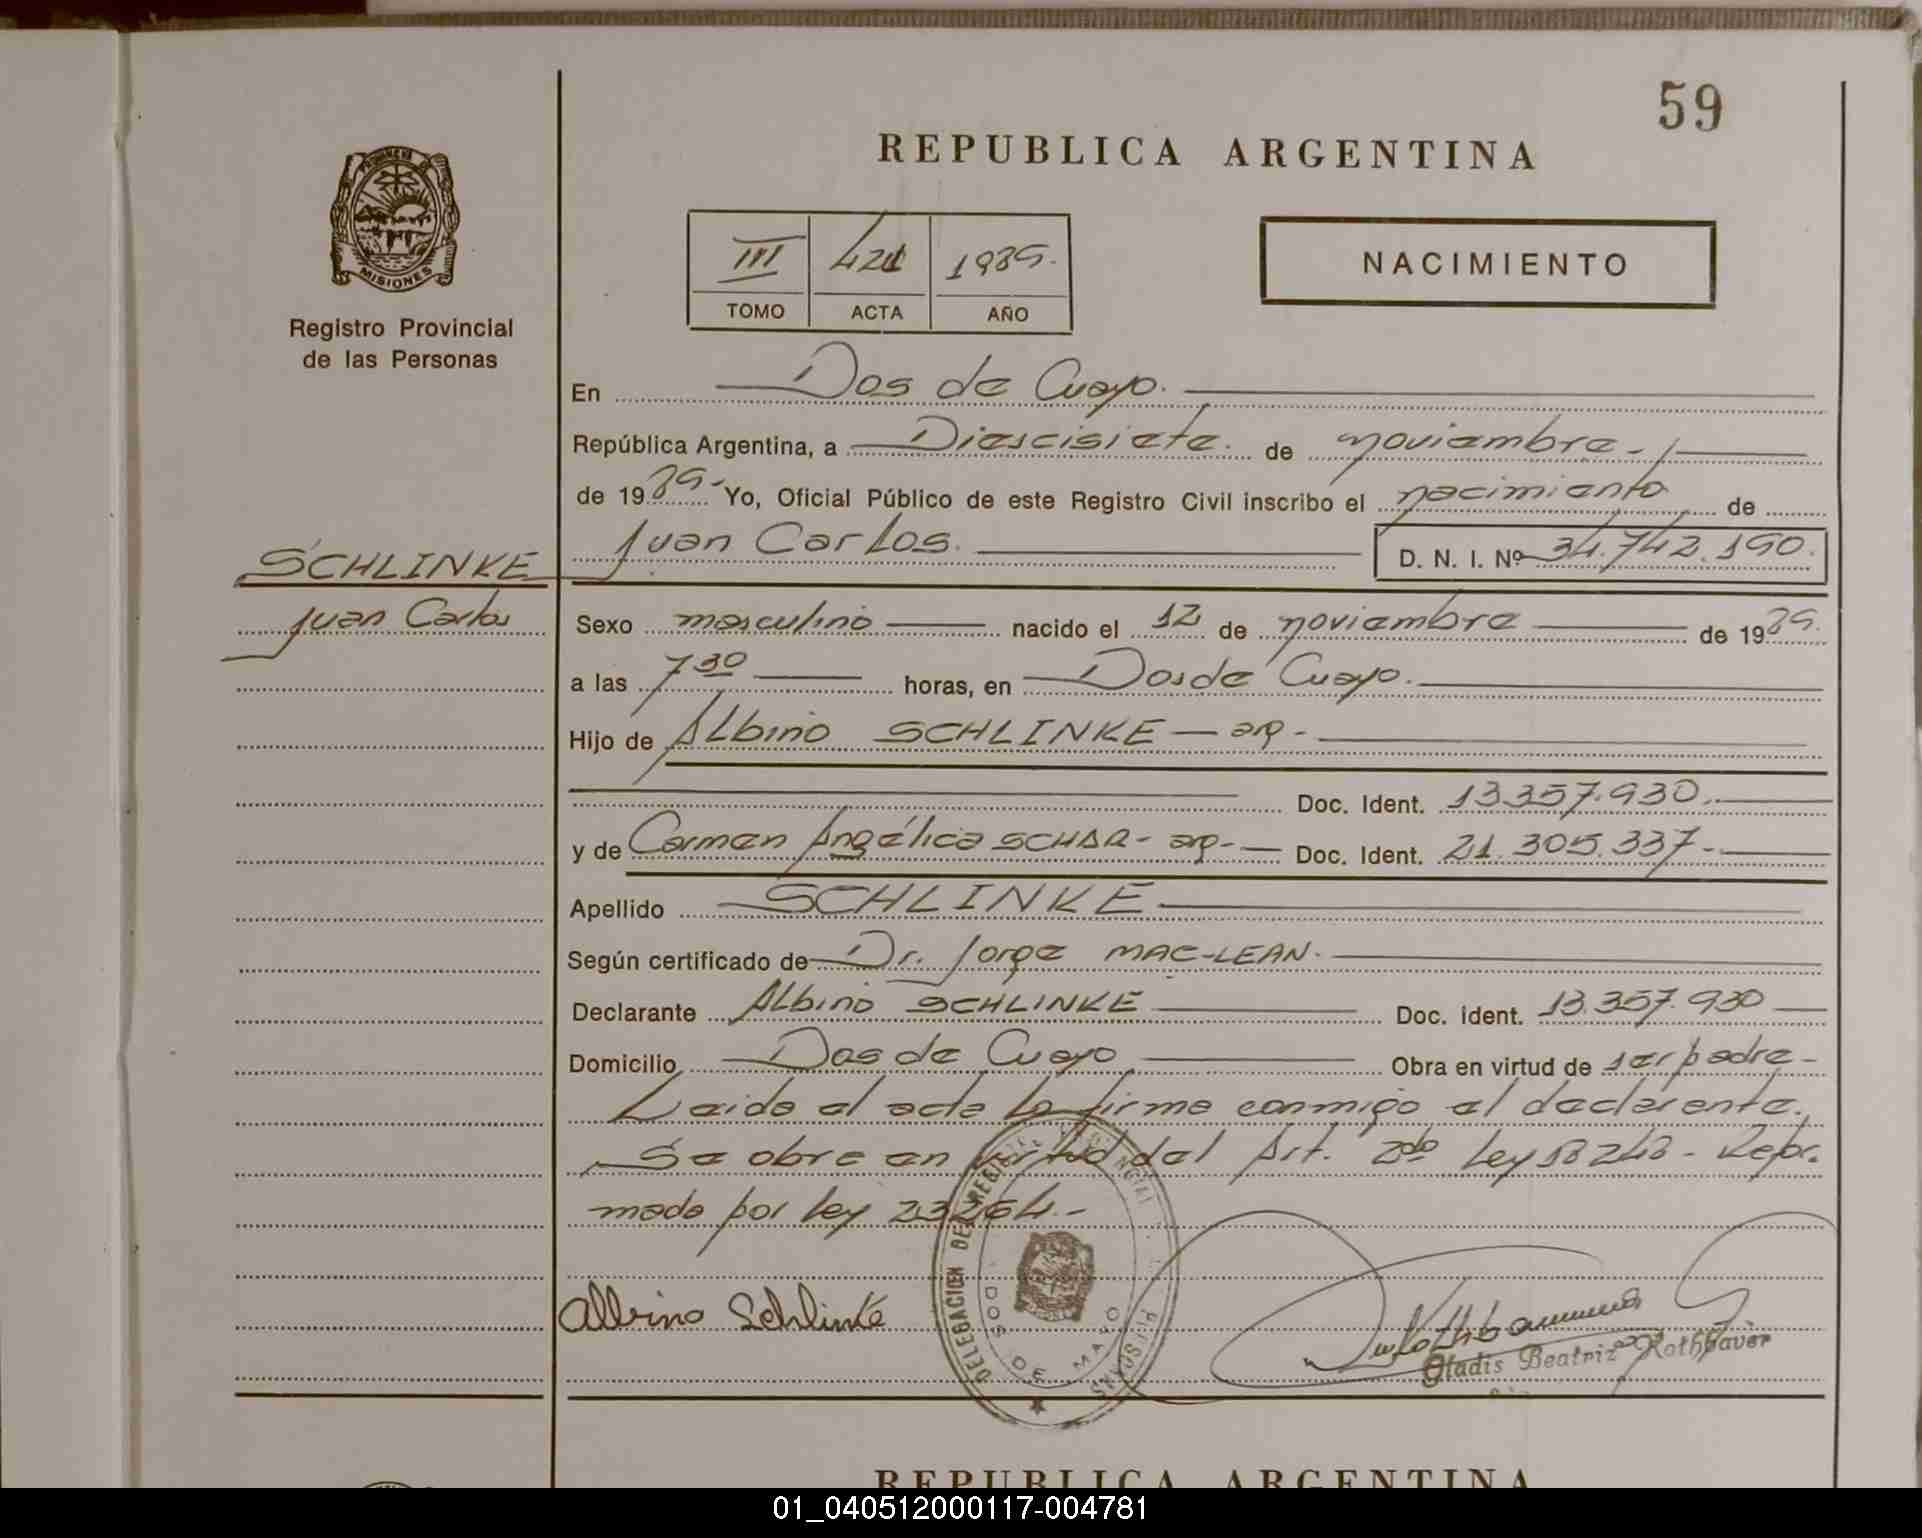 59
REPUBLICA ARGENTINA
PROVINCIA DE
MISIONES
Registro Provincial
de las Personas
III 421 1989.
TOMO ACTA AÑO
NACIMIENTO
En Dos de Mayo.
República Argentina, a Diescisiete. de noviembre.
de 1989- Yo, Oficial Público de este Registro Civil inscribo el nacimiento de
Juan Carlos. D. N. I. Nº 34.742.190.
SCHLINKE
Juan Carlos
Sexo masculino nacido el 12 de noviembre de 1989.
a las 7 30 horas, en Dos de Mayo.
Hijo de Albino SCHLINKE — arg -
Doc. Ident. 13.357.930.
y de Carmen Angélica SCHAR - arg - Doc. Ident. 21.305.337-.
Apellido SCHLINKE
Según certificado de Dr. Jorge MAC-LEAN.
Declarante Albino SCHLINKE Doc. Ident. 13.357.930
Domicilio Dos de Mayo Obra en virtud de ser padre-
Leida el acta la firma conmigo el declarante.
Se obra en virtud del Art. 2do Ley 18248 - Refor-
mado por Ley 23264.-
Albino Schlinke
DELEGACION DEL REGISTRO PROVINCIAL DE LAS PERSONAS
DOS DE MAYO
Gladis Beatriz Rothbaver
REPUBLICA ARGENTINA
01_040512000117-004781